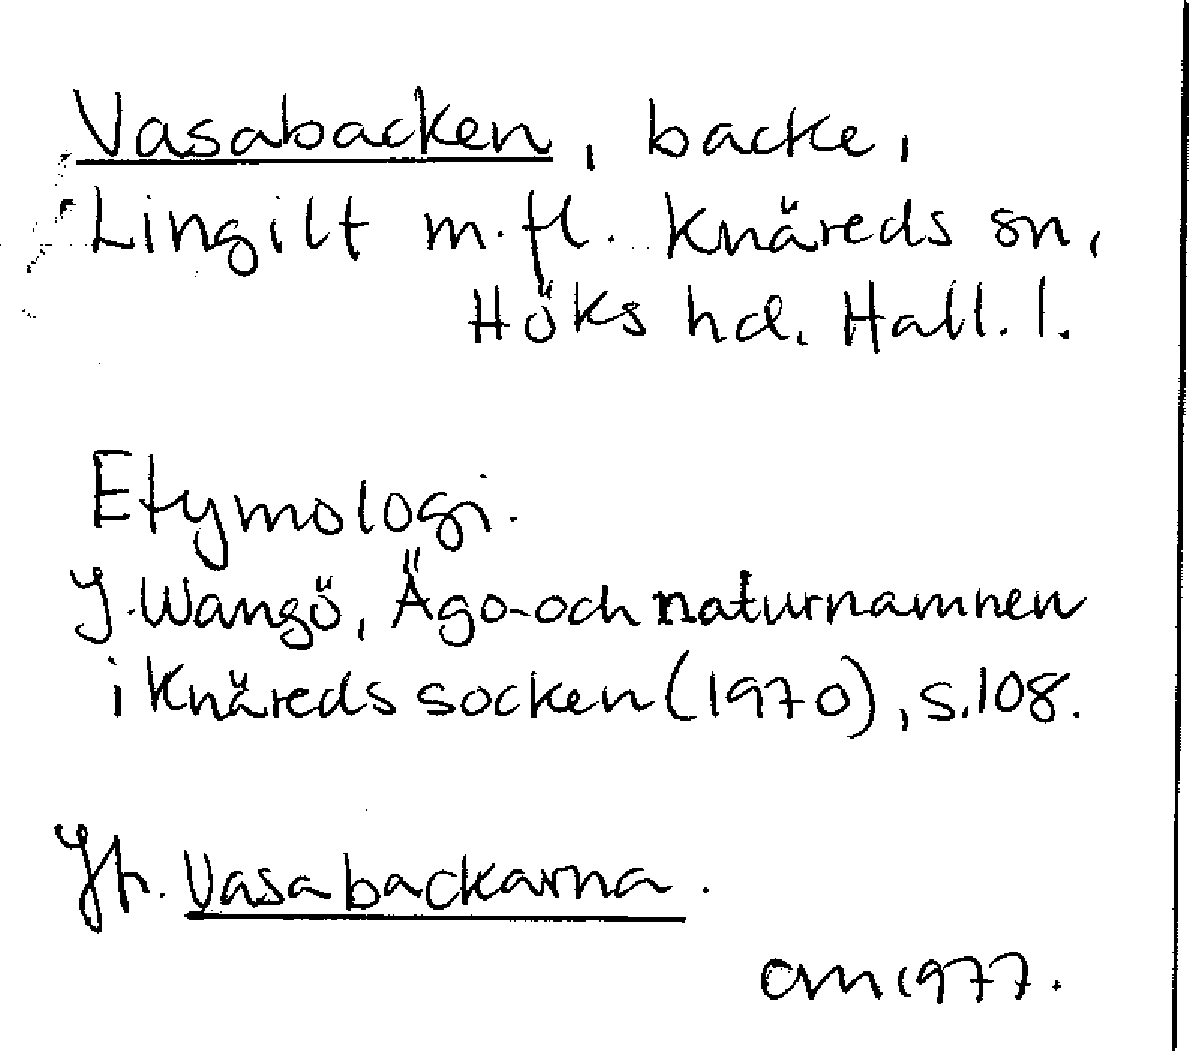 Vasabacken, backe,
Lingilt m.fl. Knäreds sn,
Höks hd. Hall. l.
Etymologi.
J. Wangö, Ägo- och naturnamnen
i Knäreds socken (1970), s. 108.
Jfr. Vasabackarna.
CM 1977.